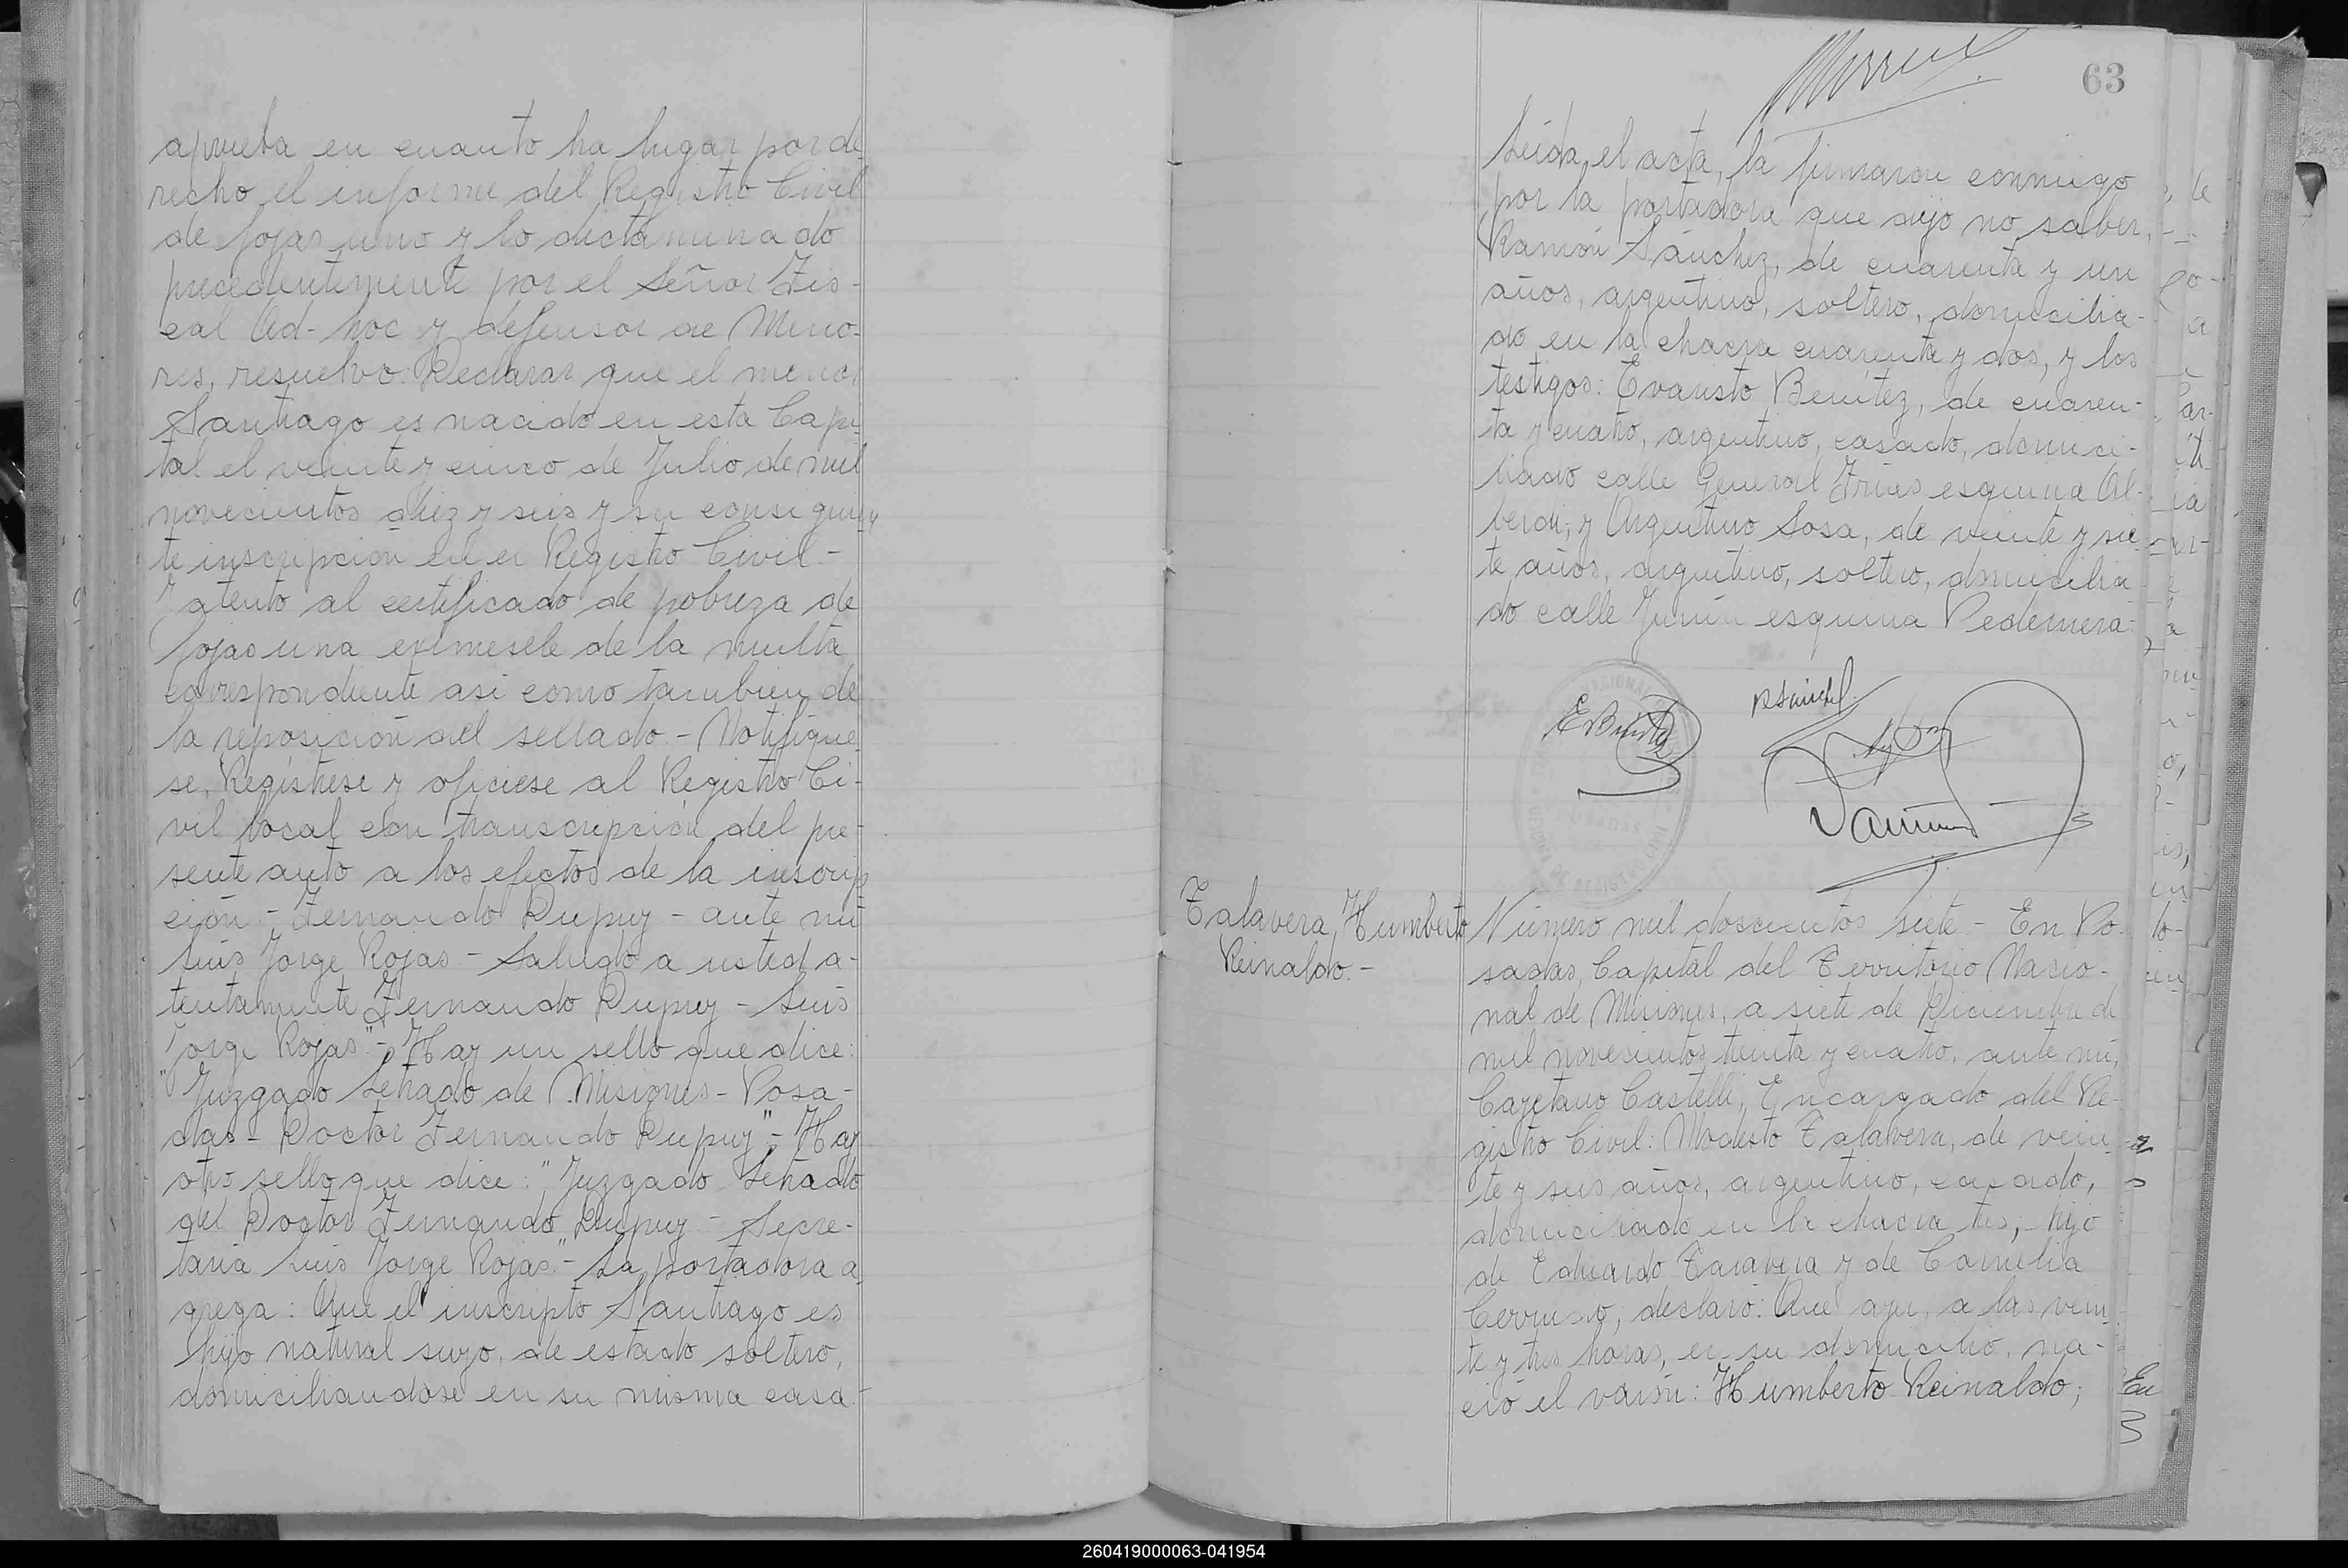 aprueba en cuanto ha lugar por de-
recho el informe del Registro Civil
de fojas uno y lo dictaminado
precedentemente por el Señor Fis-
cal Ad-hoc y defensor de Meno-
res, resuelvo: Declarar que el menor
Santiago es nacido en esta Capi-
tal el veinte y cinco de Julio de mil
novecientos diez y seis y su consiguien-
te inscripción en el Registro Civil.-
Y atento al certificado de pobreza de
fojas una exímesele de la multa
correspondiente asi como tambien de
la reposición del sellado - Notifíque-
se, Regístrese y ofíciese al Registro Ci-
vil local con transcripción del pre-
sente auto a los efectos de la inscrip-
ción - Fernando Dupuy - ante mi
Luis Jorge Rojas - Saludo a usted a-
tentamente Fernando Dupuy - Luis
Jorge Rojas" - Hay un sello que dice:
"Juzgado Letrado de Misiones - Posa-
das - Doctor Fernando Dupuy" - Hay
otro sello que dice: "Juzgado Letrado
del Doctor Fernando Dupuy - Secre-
taría Luis Jorge Rojas" - La portadora a-
grega: Que el inscripto Santiago es
hijo natural suyo, de estado soltero,
domiciliandose en su misma casa-
63
Leída el acta, la firmaron conmigo
por la portadora que dijo no saber,
Ramón Sánchez, de cuarenta y un
años, argentino, soltero, domicilia-
do en la chacra cuarenta y dos, y los
testigos: Evaristo Benítez, de cuaren-
ta y cuatro, argentino, casado, domici-
liado calle General Frías esquina Al-
berdi, y Argentino Sosa, de veinte y sie-
te años, argentino, soltero, domicilia-
do calle Junín esquina Pedernera-
E Benítez
RSánchez
Talavera, Humberto
Reinaldo.-
Número mil doscientos siete - En Po-
sadas, Capital del Territorio Nacio-
nal de Misiones, a siete de Diciembre de
mil novecientos treinta y cuatro, ante mí,
Cayetano Castelli, Encargado del Re-
gistro Civil: Modesto Talavera, de vein-
te y seis años, argentino, casado,
domiciliado en la chacra tres, hijo
de Eduardo Talavera y de
declaró: Que ayer, a las vein-
te y tres horas, en su domicilio, na-
ció el varón: Humberto Reinaldo;
260419000063-041954